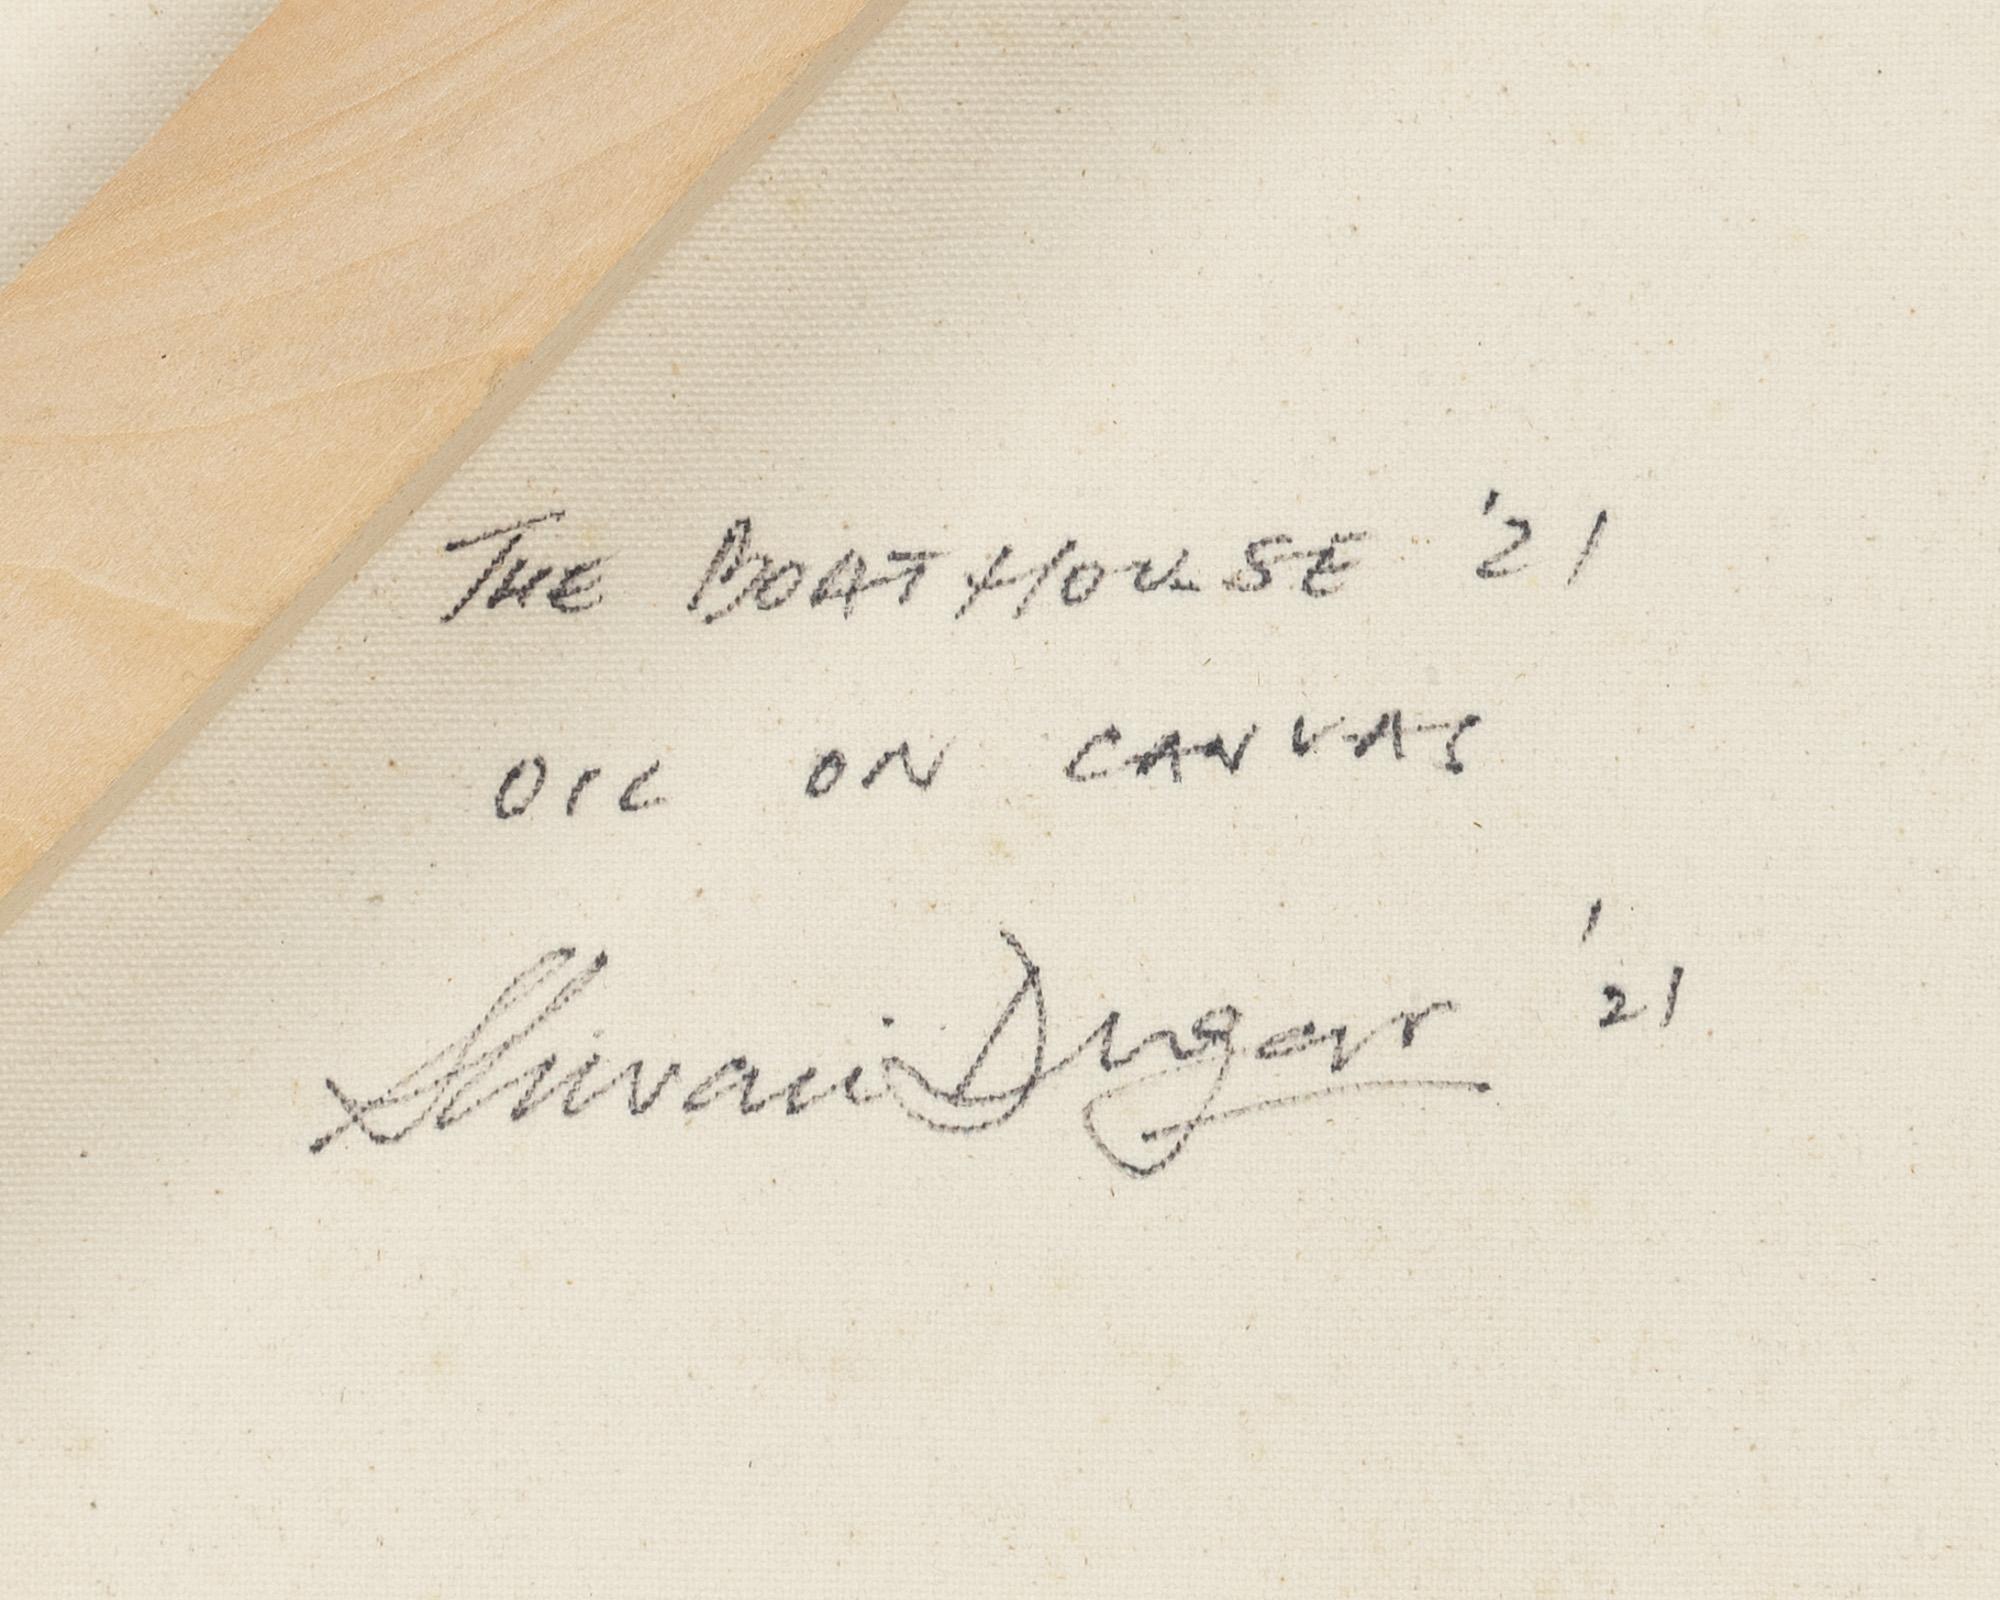 THE BOATHOUSE '21
OIL ON CANVAS
Shivani Dugar '21